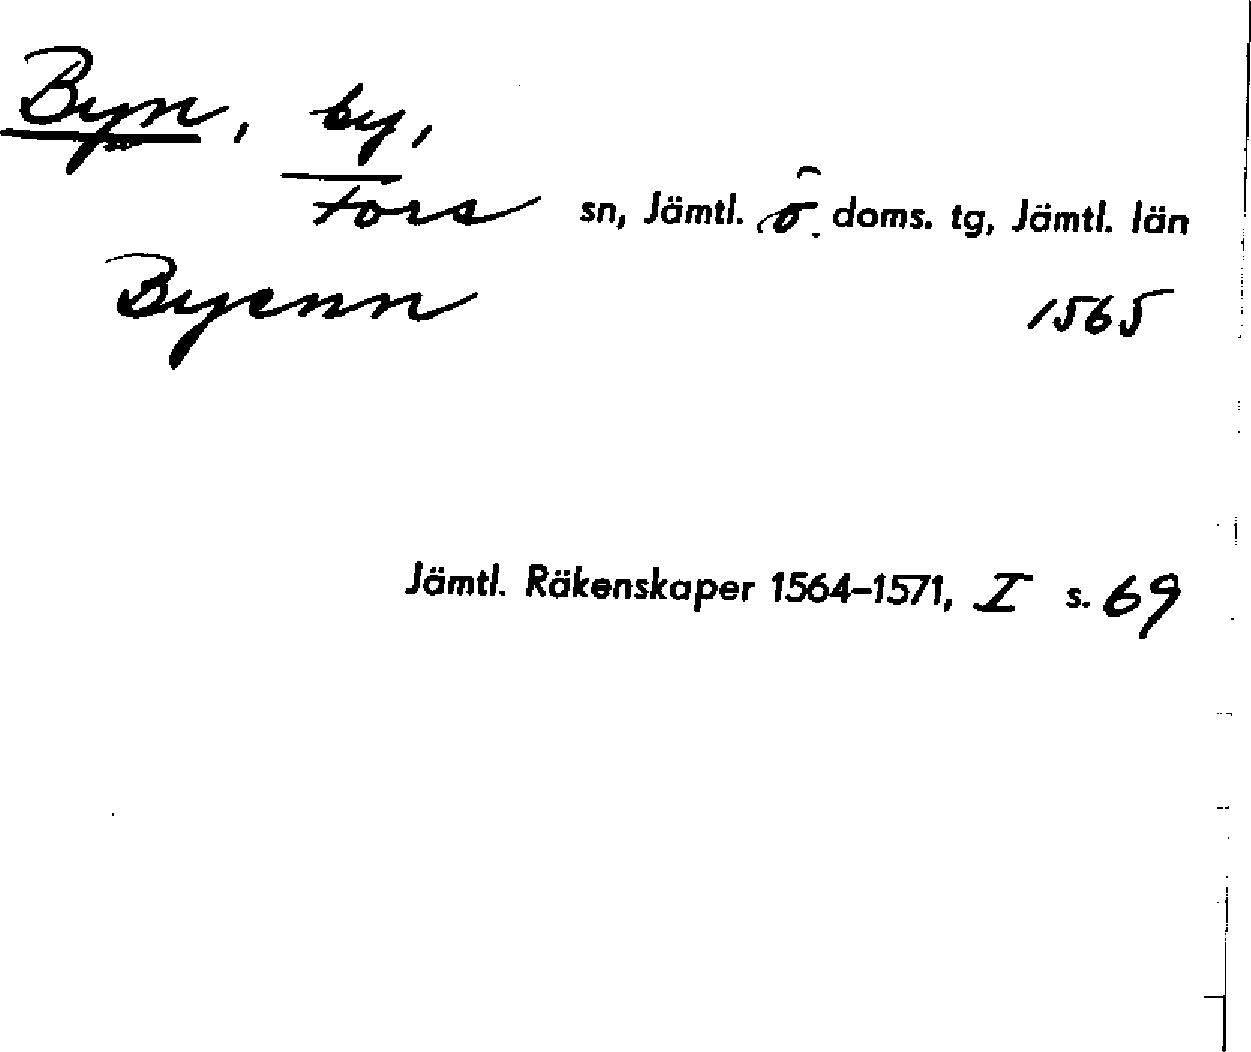 Byn, by,
Fors sn, Jämtl. ö. doms. tg, Jämtl. län
Byenn 1565
Jämtl. Räkenskaper 1564–1571, I s. 69